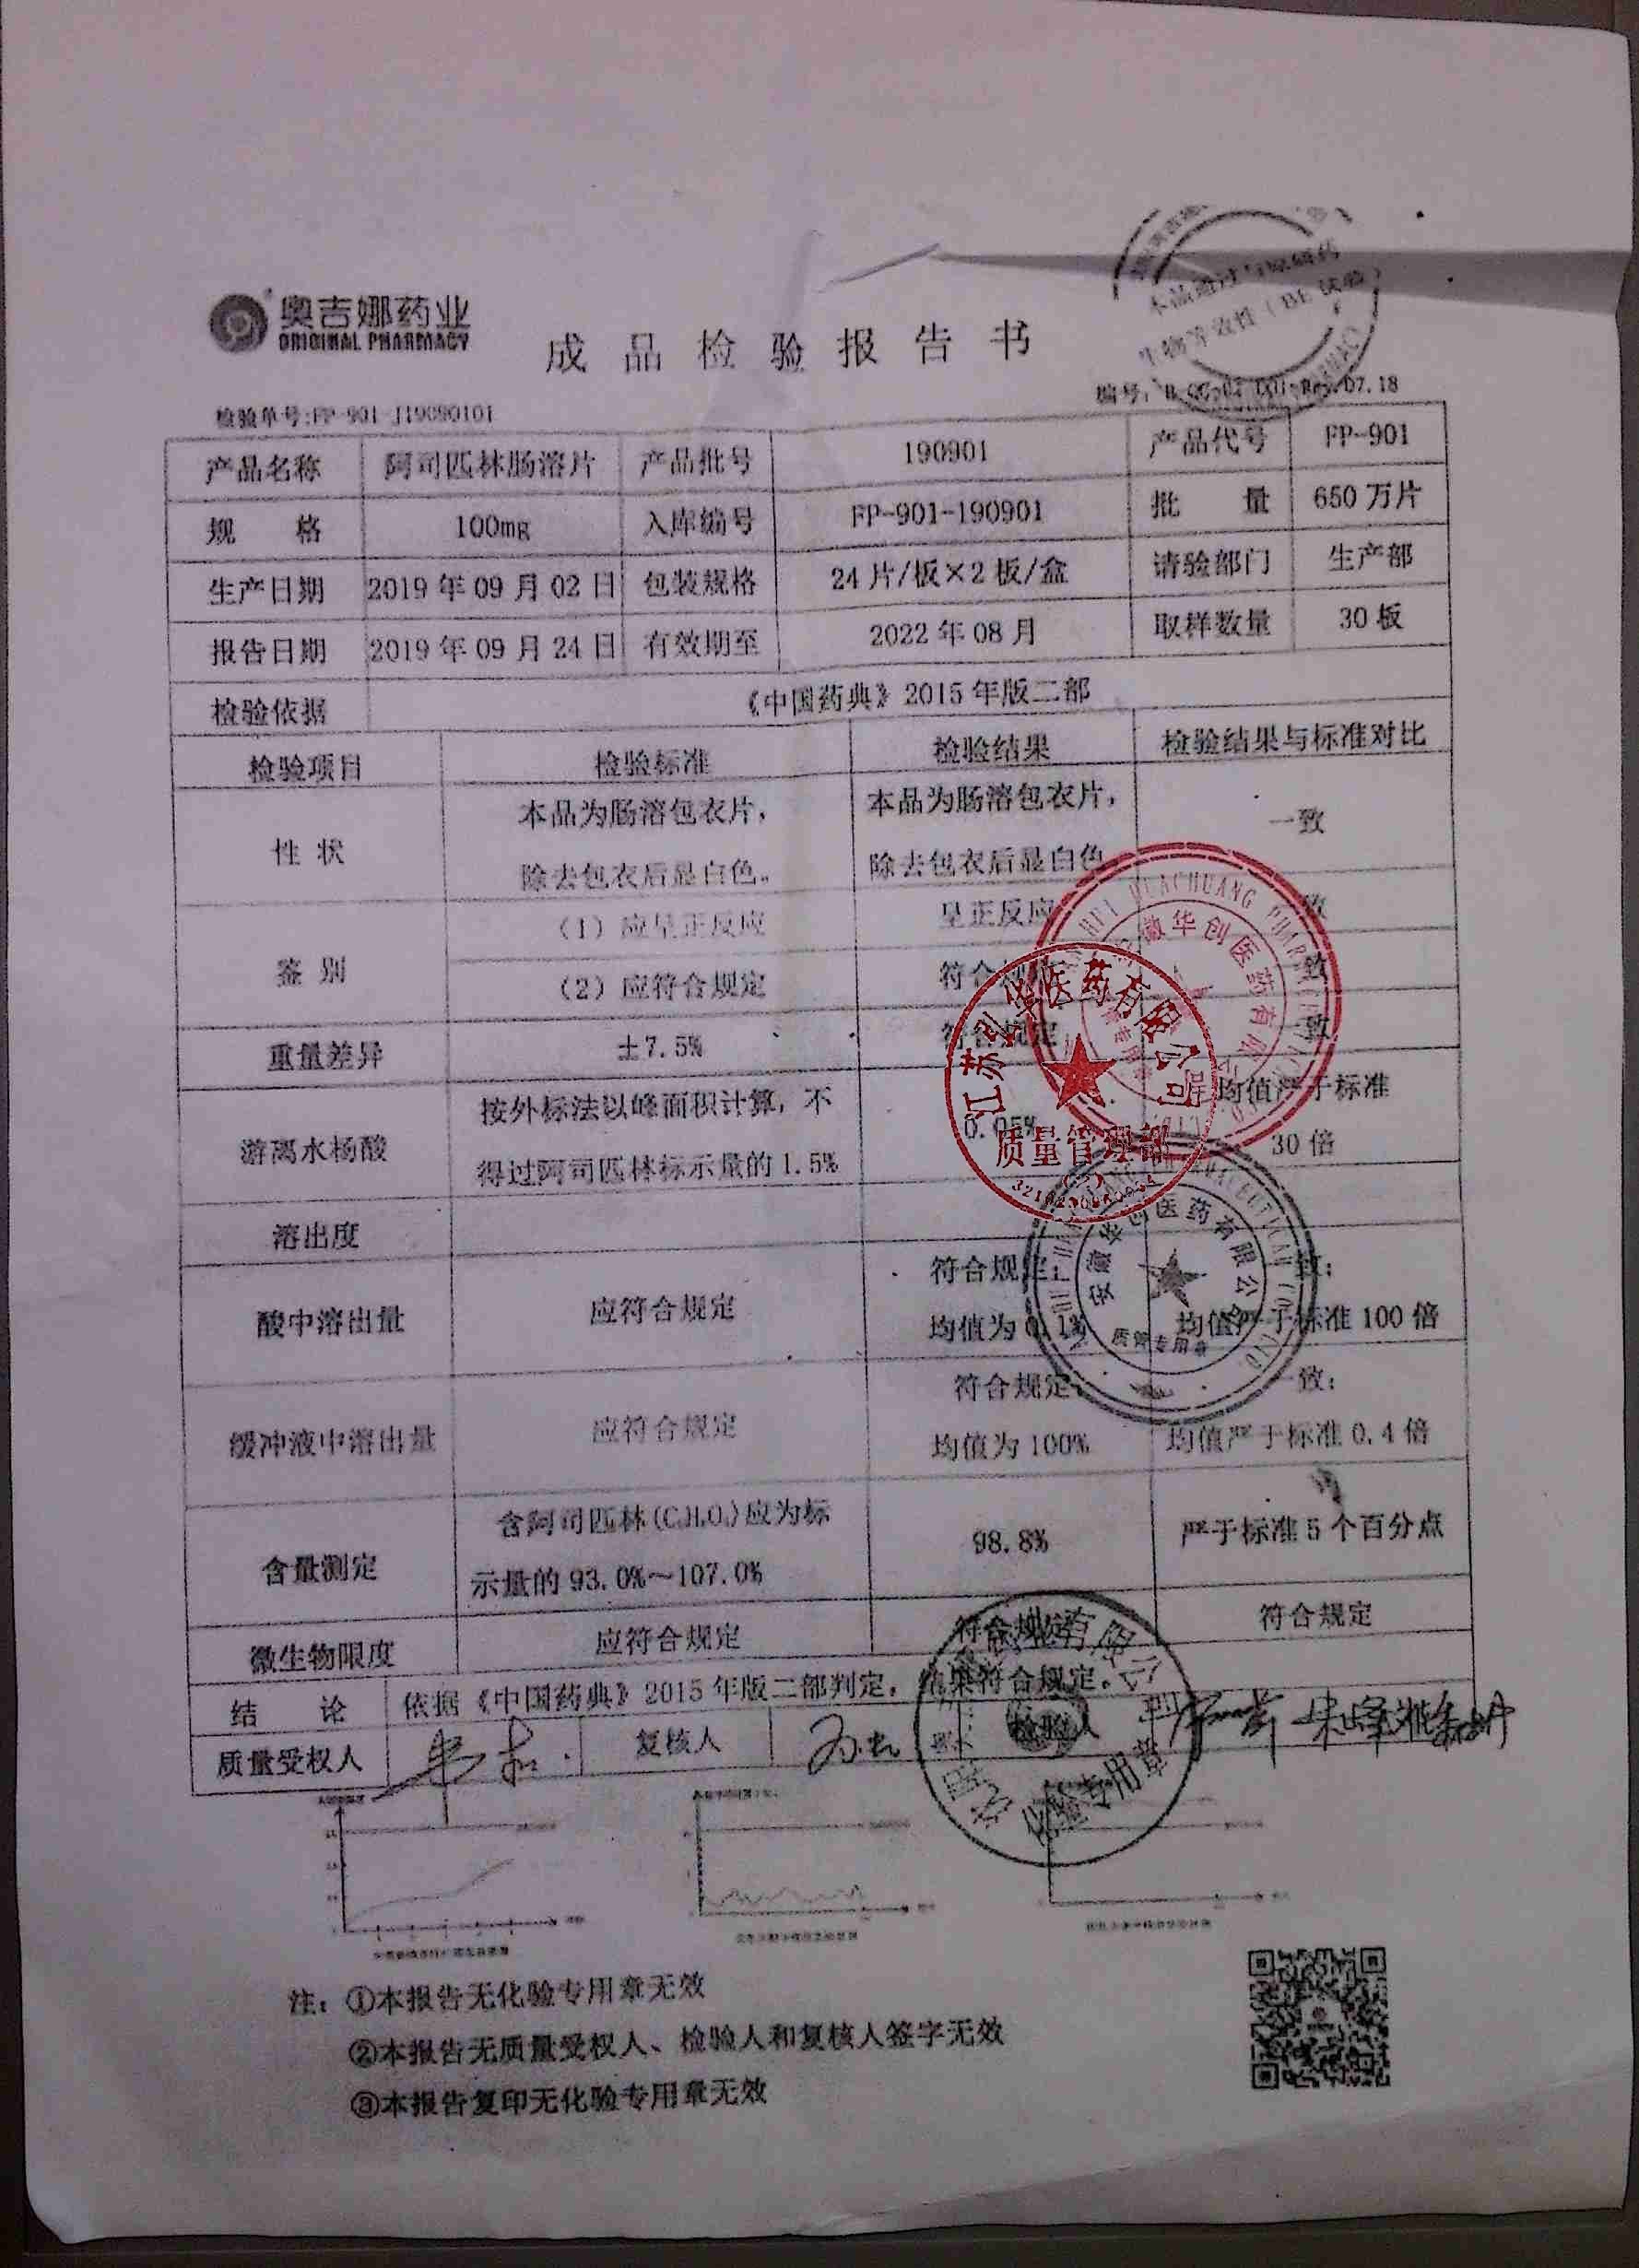 奥吉娜药业
ORIGINAL PHARMACY
成品检验报告书
本品通过与原研药
生物等效性（BE试验）
检验单号:FP-901-J19090101
编号: Rev.07.18
产品名称 阿司匹林肠溶片 产品批号 190901 产品代号 FP-901
规 格 100mg 入库编号 FP-901-190901 批 量 650万片
生产日期 2019年09月02日 包装规格 24片/板×2板/盒 请验部门 生产部
报告日期 2019年09月24日 有效期至 2022年08月 取样数量 30板
检验依据 《中国药典》2015年版二部
检验项目 检验标准 检验结果 检验结果与标准对比
性 状 本品为肠溶包衣片， 本品为肠溶包衣片， 一致
除去包衣后显白色。 除去包衣后显白色
鉴 别 （1）应呈正反应 呈正反应 致
（2）应符合规定 符合规定 致
重量差异 ±7.5% 符合规定 一致
游离水杨酸 按外标法以峰面积计算，不 0.05% 均值严于标准
得过阿司匹林标示量的1.5% 30倍
溶出度
酸中溶出量 应符合规定 符合规定； 致；
均值为0.1% 均值严于标准100倍
缓冲液中溶出量 应符合规定 符合规定 一致；
均值为100% 均值严于标准0.4倍
含量测定 含阿司匹林(C₉H₈O₄)应为标 98.8% 严于标准5个百分点
示量的93.0%～107.0%
微生物限度 应符合规定 符合规定 符合规定
结 论 依据《中国药典》2015年版二部判定，结果符合规定。
质量受权人 复核人 检验人
安徽华创医药有限公司
ANHUI HUACHUANG PHARMACEUTICAL
医药有限公司
质量管理部
安徽华创医药有限公
质管专用章
化验专用章
注：①本报告无化验专用章无效
②本报告无质量受权人、检验人和复核人签字无效
③本报告复印无化验专用章无效